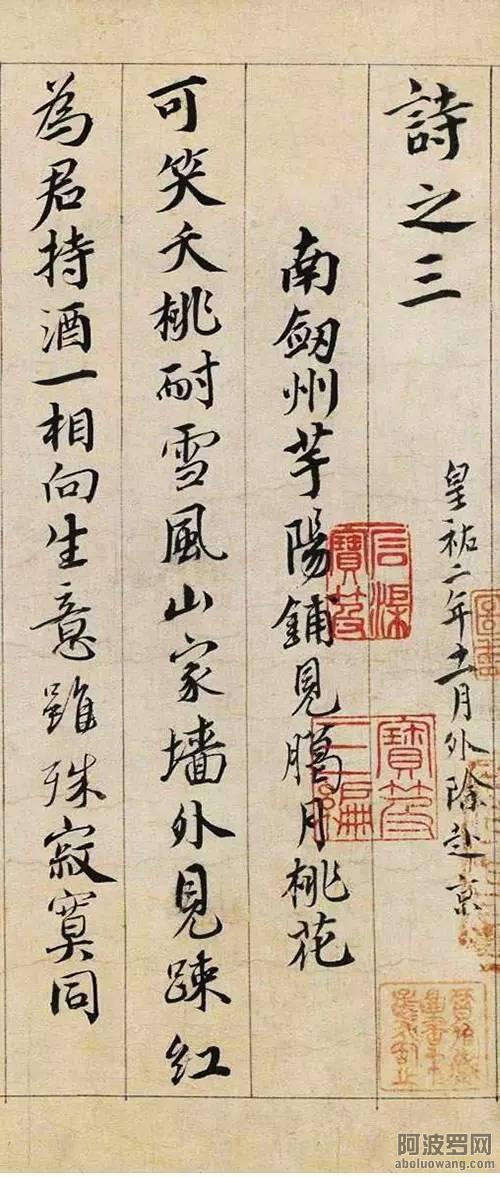 詩之三
皇祐二年十一月外除赴京
南劒州芋陽鋪見臘月桃花
可笑夭桃耐雪風山家墻外見踈紅
為君持酒一相向生意雖殊寂寞同
寶笈
三編
阿波罗网
aboluowang.com